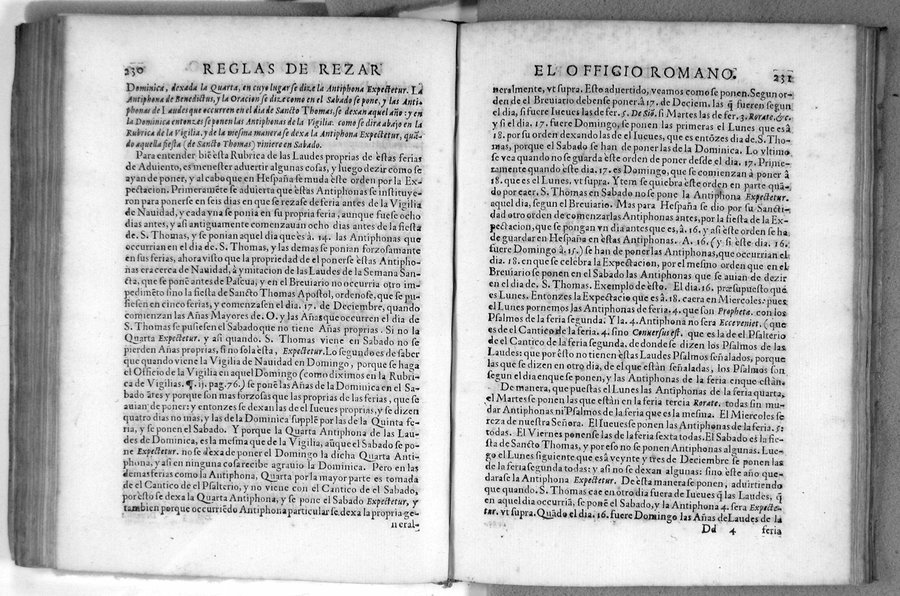 230 REGLAS DE REZAR
Dominica, dexada la Quarta, en cuyo lugar se dize la Antiphona Expectetur. La
Antiphona de Benedictus, y la Oracion se dize como en el Sabado se pone, y las Anti-
phonas de Laudes que occurren en el dia de Sancto Thomas, se dexan aquel año: y en
la Dominica entonzes se ponen las Antiphonas de la Vigilia. como se dira abajo en la
Rubrica de la Vigilia. y de la mesma manera se dexa la Antiphona Expectetur, quã-
do aquella fiesta (de Sancto Thomas) viniere en Sabado.
Para entender biẽ esta Rubrica de las Laudes proprias de estas ferias
de Aduiento, es menester aduertir algunas cosas, y luego dezir como se
ayan de poner, y al cabo que en Hespaña se muda este orden por la Ex-
pectacion. Primeramẽte se aduierta que estas Antiphonas se instituye-
ron para ponerse en seis dias en que se reza de feria antes de la Vigilia
de Nauidad, y cada vna se ponia en su propria feria, aunque fuese ocho
dias antes, y asi antiguamente comenzauan ocho dias antes de la fiesta
de. S. Thomas, y se ponian aquel dia que es à. 14. las Antiphonas que
occurrian en el dia de. S. Thomas, y las demas se ponian forzosamente
en sus ferias, ahora visto que la propiedad de el ponerse estas Antipho-
nas era cerca de Nauidad, à ymitacion de las Laudes de la Semana San-
cta, que se ponẽ antes de Pascua, y en el Breuiario no occurria otro im-
pedimẽto sino la fiesta de Sancto Thomas Apostol, ordenose, que se pu-
siesen en cinco ferias, y comenzasen el dia. 17. de Deciembre, quando
comienzan las Añas Mayores de. O. y las Añas que occurren el dia de
S. Thomas se pusiesen el Sabado que no tiene Añas proprias. Si no la
Quarta Expectetur. y asi quando. S. Thomas viene en Sabado no se
pierden Añas proprias, si no sola esta, Expectetur. Lo segundo es de saber
que quando viene la Vigilia de Nauidad en Domingo, porque se haga
el Officio de la Vigilia en aquel Domingo (como diximos en la Rubri-
ca de Vigilias. ¶. ij. pag. 76.) se ponẽ las Añas de la Dominica en el Sa-
bado ãtes y porque son mas forzosas que las proprias de las ferias, que se
auian de poner; y entonzes se dexan las de el Iueues proprias, y se dizen
quatro dias no mas, y las de la Dominica supplẽ por las de la Quinta fe-
ria, y se ponen el Sabado. Y porque la Quarta Antiphona de las Lau-
des de Dominica, es la mesma que de la Vigilia, aũque el Sabado se po-
ne Expectetur. no se dexa de poner el Domingo la dicha Quarta Anti-
phona, y asi en ninguna cosa recibe agrauio la Dominica. Pero en las
demas ferias como la Antiphona, Quarta por la mayor parte es tomada
de el Cantico de el Psalterio, y no viene con el Cantico de el Sabado,
por ẽsto se dexa la Quarta Antiphona, y se pone el Sabado Expectetur, y
tambien porque occurriẽdo Antiphona particular se. dexa la propria ge-
neral-
EL OFFICIO ROMANO. 231
neralmente, vt supra. Esto aduertido, veamos como se ponen. Segun or-
den de el Breuiario debense poner à. 17. de Deciem. las q̃ fueren segun
el dia, si fuere Iueues las de fer. 5. De Siõ. si Martes las de fer. 3. Rorate, &c.
y si el dia. 17. fuere Domingo, se ponen las primeras el Lunes que es à
18. por su orden dexando las de el Iueues, que es entõzes dia de. S. Tho-
mas, porque el Sabado se han de poner las de la Dominica. Lo vltimo
se vea quando no se guarda este orden de poner desde el dia. 17. Prime-
ramente quando este dia. 17. es Domingo, que se comienzan à poner à
18. que es el Lunes, vt supra. Ytem se quiebra este orden en parte quã-
do por caer. S. Thomas en Sabado no se pone la Antiphona Expectetur.
aquel dia, segun el Breuiario. Mas para Hespaña se dio por su Sancti-
dad otro orden de comenzar las Antiphonas antes, por la fiesta de la Ex-
pectacion, que se pongan vn dia antes que es, à. 16. y asi este orden se ha
de guardar en Hespaña en estas Antiphonas. A. 16. (y si este dia. 16.
fuere Domingo à. 15.) se han de poner las Antiphonas, que occurrian el
dia. 18. en que se celebra la Expectacion, por el mesmo orden que en el
Breuiario se ponen en el Sabado las Antiphonas que se auian de dezir
en el dia de. S. Thomas. Exemplo de esto. El dia. 16. presupuesto que
es Lunes. Entonzes la Expectacio que es à. 18. caera en Miercoles: pues
el Lunes ponemos las Antiphonas de feria. 4. que son Propheta. con los
Psalmos de la feria segunda. Y la. 4. Antiphona no sera Ecceveniet. (que
es de el Cantico de la feria. 4. sino Conuersus est. que es la de el Psalterio
de el Cantico de la feria segunda, de donde se dizen los Psalmos de las
Laudes: que por esto no tienen estas Laudes Psalmos señalados, porque
las que se dizen en otro dia, de el que estan señaladas, los Psalmos son
segun el dia en que se ponen, y las Antiphonas de la feria en que estãn.
De manera, que puestas el Lunes las Antiphonas de la feria quarta,
el Martes se ponen las que estàn en la feria tercia Rorate. todas sin mu-
dar Antiphonas ni Psalmos de la feria que es la mesma. El Miercoles se
reza de nuestra Señora. El Iueues se ponen las Antiphonas de la feria. 5:
todas. El Viernes ponense las de la feria sexta todas. El Sabado es la fie-
sta de Sancto Thomas, y por eso no se ponen Antiphonas algunas. Lue-
go el Lunes siguiente que es à veynte y tres de Deciembre se ponen las
de la feria segunda todas: y asi no se dexan algunas: sino este año que-
darase la Antiphona Expectetur. De esta manera se ponen, aduirtiendo
que quando. S. Thomas cae en otro dia fuera de Iueues q̃ las Laudes, q̃
en aquel dia occurria, se ponẽ el Sabado, y la Antiphona 4. sera Expecte-
tur. vt supra. Quãdo el dia. 16. fuere Domingo las Añas de Laudes de la
Dd 4 feria